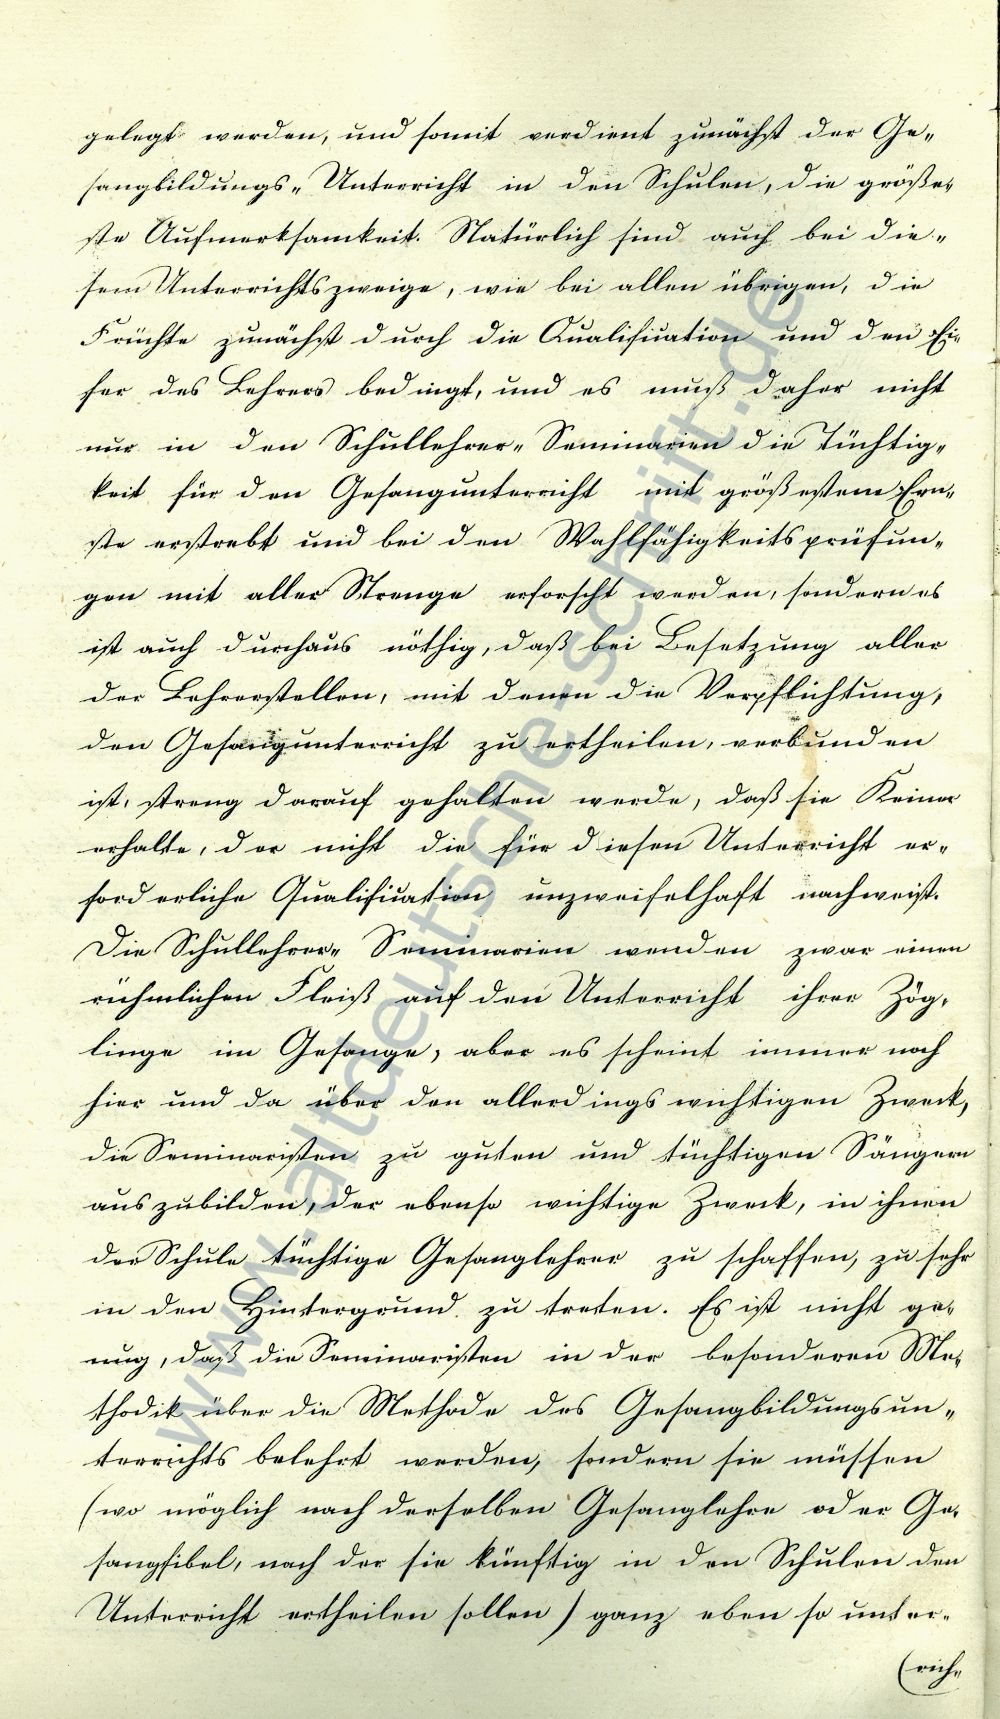 gelegt werden, und somit verdient zunächst der Ge-
sangbildungs-Unterricht in den Schulen, die größe-
ste Aufmerksamkeit. Natürlich sind auch bei die-
sem Unterrichtszweige, wie bei allen übrigen, die
Früchte zunächst durch die Qualification und den Ei-
fer des Lehrers bedingt, und es muß daher nicht
nur in den Schullehrer-Seminarien die Tüchtig-
keit für den Gesangunterricht mit größestem Ern-
ste erstrebt und bei den Wahlfähigkeitsprüfun-
gen mit aller Strenge erforscht werden, sondern es
ist auch durchaus nöthig, daß bei Besetzung aller
der Lehrerstellen, mit denen die Verpflichtung,
den Gesangunterricht zu ertheilen, verbunden
ist, streng darauf gehalten werde, daß sie Keiner
erhalte, der nicht die für diesen Unterricht er-
forderliche Qualification unzweifelhaft nachweist.
Die Schullehrer-Seminarien wenden zwar einen
rühmlichen Fleiß auf den Unterricht ihrer Zög-
linge im Gesange, aber es scheint immer noch
hier und da über den allerdings wichtigen Zweck,
die Seminaristen zu guten und tüchtigen Sängern
auszubilden, der ebenso wichtige Zweck, in ihnen
der Schule tüchtige Gesanglehrer zu schaffen, zu sehr
in den Hintergrund zu treten. Es ist nicht ge-
nug, daß die Seminaristen in der besonderen Me-
thodik über die Methode des Gesangbildungsun-
terrichts belehrt werden, sondern sie müssen
(wo möglich nach derselben Gesanglehre oder Ge-
sangfibel, nach der sie künftig in den Schulen den
Unterricht ertheilen sollen) ganz eben so unter-
(rich-
www.altdeutsche-schrift.de